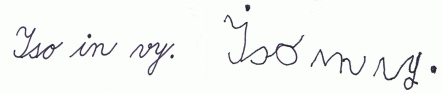 Iso in vy. Iso in vy.